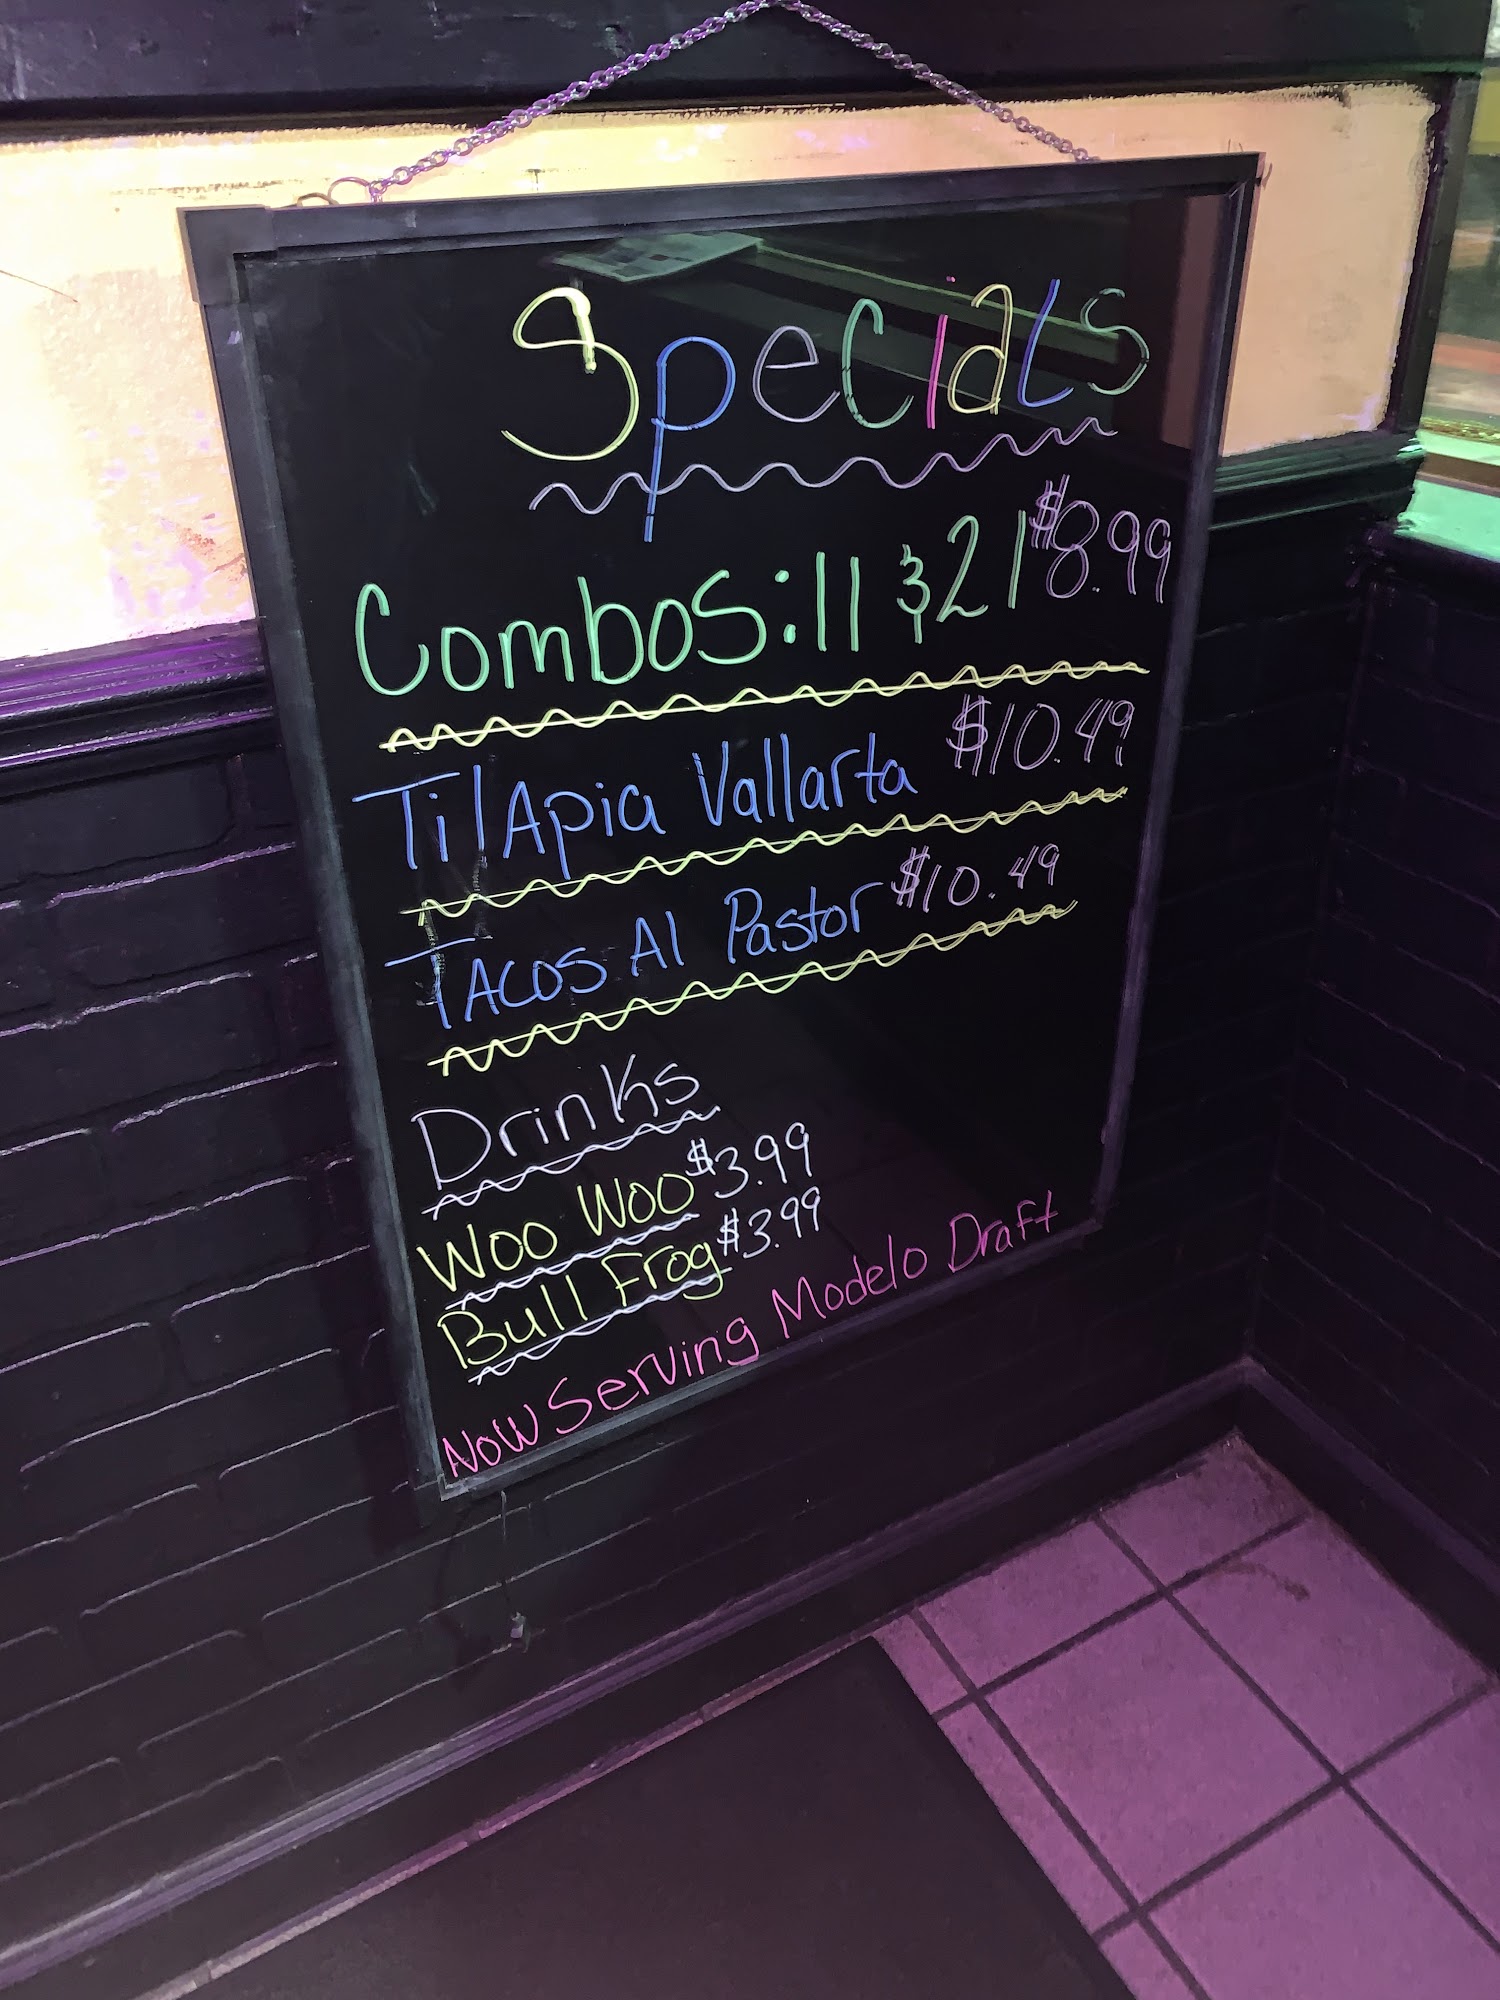 Specials
Combos: 11 & 21 $8.99
TilApia Vallarta $10.49
TACOS Al Pastor $10.49
Drinks
Woo Woo $3.99
Bull Frog $3.99
Now Serving Modelo Draft